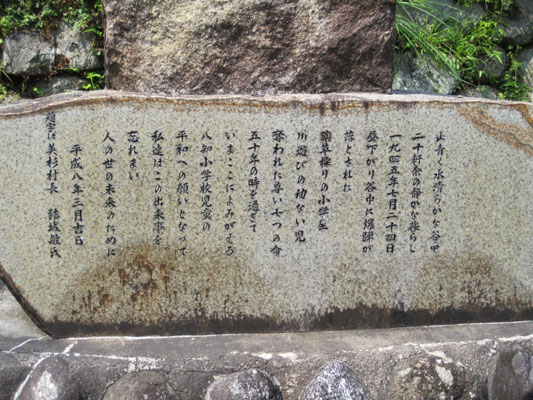 山青く水清らかな谷中
二十軒余の静かな暮らし
一九四五年七月二十四日
昼下がり谷中に爆弾が
落とされた
薬草採りの小学生
川遊びの幼ない児
奪われた尊い七つの命
五十年の時を過ぎて
いまここによみがえる
八知小学校児童の
平和への願いとなって
私達はこの出来事を
忘れまい
人の世の未来のために
平成八年三月吉日
題字は美杉村長 結城敏氏